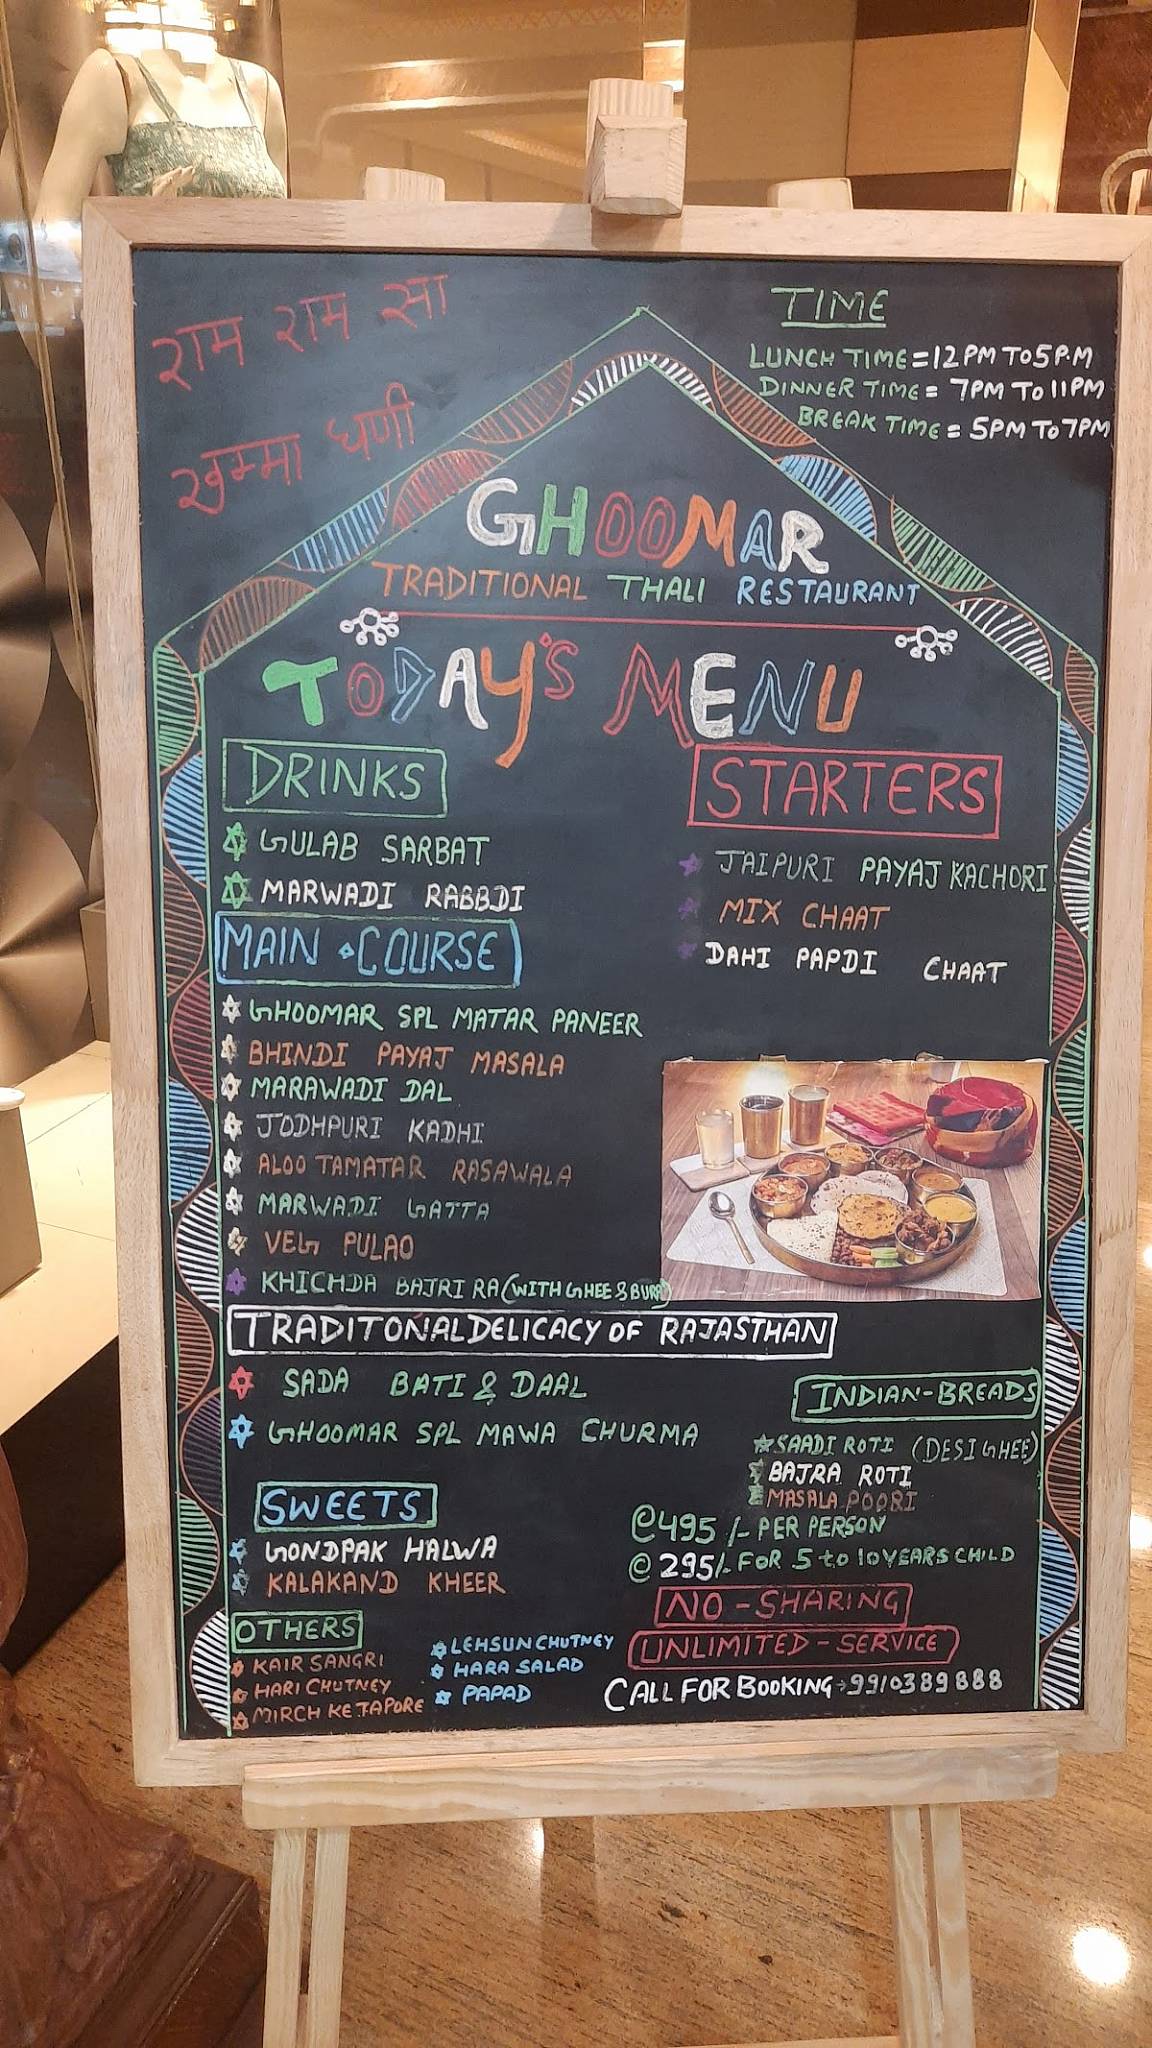 राम राम सा
खम्मा घणी
TIME
LUNCH TIME = 12 PM TO 5 P.M
DINNER TIME = 7PM TO 11PM
BREAK TIME = 5PM TO 7PM
GHOOMAR
TRADITIONAL THALI RESTAURANT
TODAY'S MENU
DRINKS
GULAB SARBAT
MARWADI RABBDI
STARTERS
JAIPURI PAYAJ KACHORI
MIX CHAAT
DAHI PAPDI CHAAT
MAIN COURSE
GHOOMAR SPL MATAR PANEER
BHINDI PAYAJ MASALA
MARAWADI DAL
JODHPURI KADHI
ALOO TAMATAR RASAWALA
MARWADI GATTA
VEG PULAO
KHICHDA BAJRI RA (WITH GHEE & BURA)
TRADITONAL DELICACY OF RAJASTHAN
SADA BATI & DAAL
GHOOMAR SPL MAWA CHURMA
INDIAN-BREADS
SAADI ROTI (DESI GHEE)
BAJRA ROTI
MASALA POORI
SWEETS
GONDPAK HALWA
KALAKAND KHEER
@495/- PER PERSON
@ 295/- FOR 5 to 10 YEARS CHILD
NO-SHARING
UNLIMITED-SERVICE
CALL FOR BOOKING→9910389888
OTHERS
KAIR SANGRI
HARI CHUTNEY
MIRCH KE TAPORE
LEHSUN CHUTNEY
HARA SALAD
PAPAD